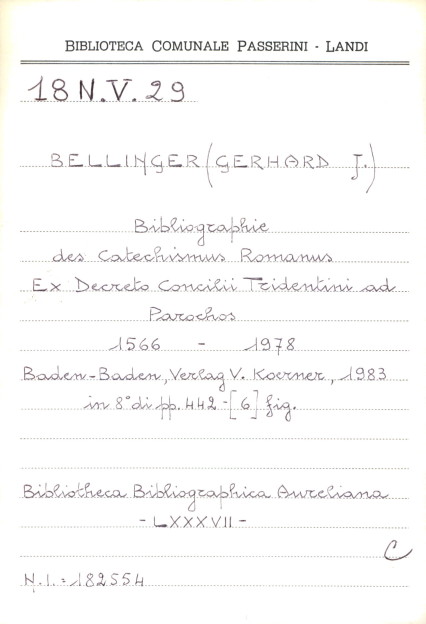 BIBLIOTECA COMUNALE PASSERINI - LANDI
18 N.V. 29
BELLINGER (GERHARD J.)
Bibliographie
des Catechismus Romanus
Ex Decreto Concilii Tridentini ad
Parochos
1566 - 1978
Baden-Baden, Verlag V. Koerner, 1983
in 8° di pp. 442 - [6] fig.
Bibliotheca Bibliographica Aureliana
- LXXXVII -
C
N.I. = 182554